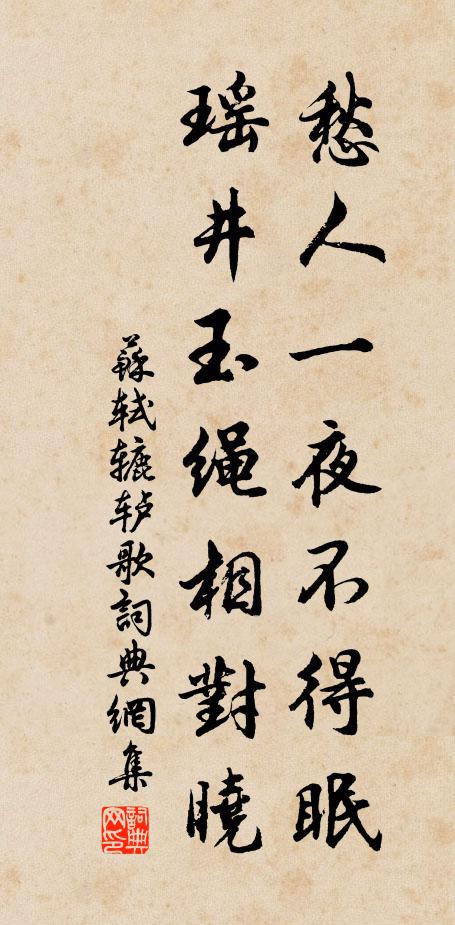 愁人一夜不得眠
瑶井玉绳相對曉
蘇轼辘轳歌詞典網集
詞典网印